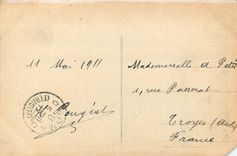 11 Mai 1911
Mademoiselle A. Petit
1, rue Passerat
Troyes (Aube)
France